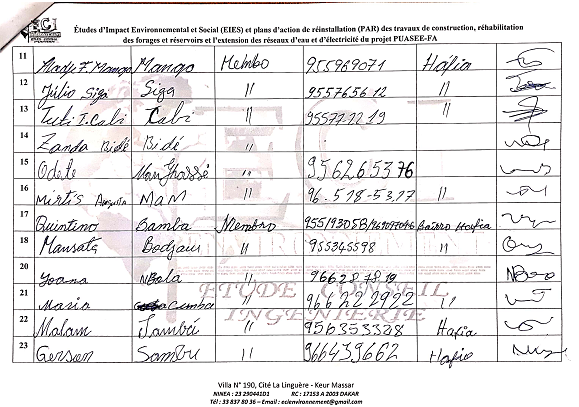 Études d'Impact Environnemental et Social (EIES) et plans d'action de réinstallation (PAR) des travaux de construction, réhabilitation
des forages et réservoirs et l'extension des réseaux d'eau et d'électricité du projet PUASEE-FA
11 F. Mango Membo 955969071 Hafia
12 Júlio Siga Siga " 955765612 "
13 T. Cabi Cabi " "
14 Zanda Bidé Bidé "
15 Odete " 956265376
16 Mirtis Augusta MaM " 96.518-53,17 "
17 Quintino Bamba Membro Bairro Hafia
18 Mansata Bodjam " 955345598 "
20 Yoana NBala " 966287819
21 Maria Camba " 966222922 "
22 Malam Sambú " 956353328 Hafia
23 Gerson Sambu " 966439662 Hafia
ETUDE CONSEIL
INGENIERIE
Villa N° 190, Cité La Linguère - Keur Massar
NINEA : 23 290441D1 RC : 17153 A 2003 DAKAR
Tél : 33 837 80 36 – Email : ecienvironnement@gmail.com